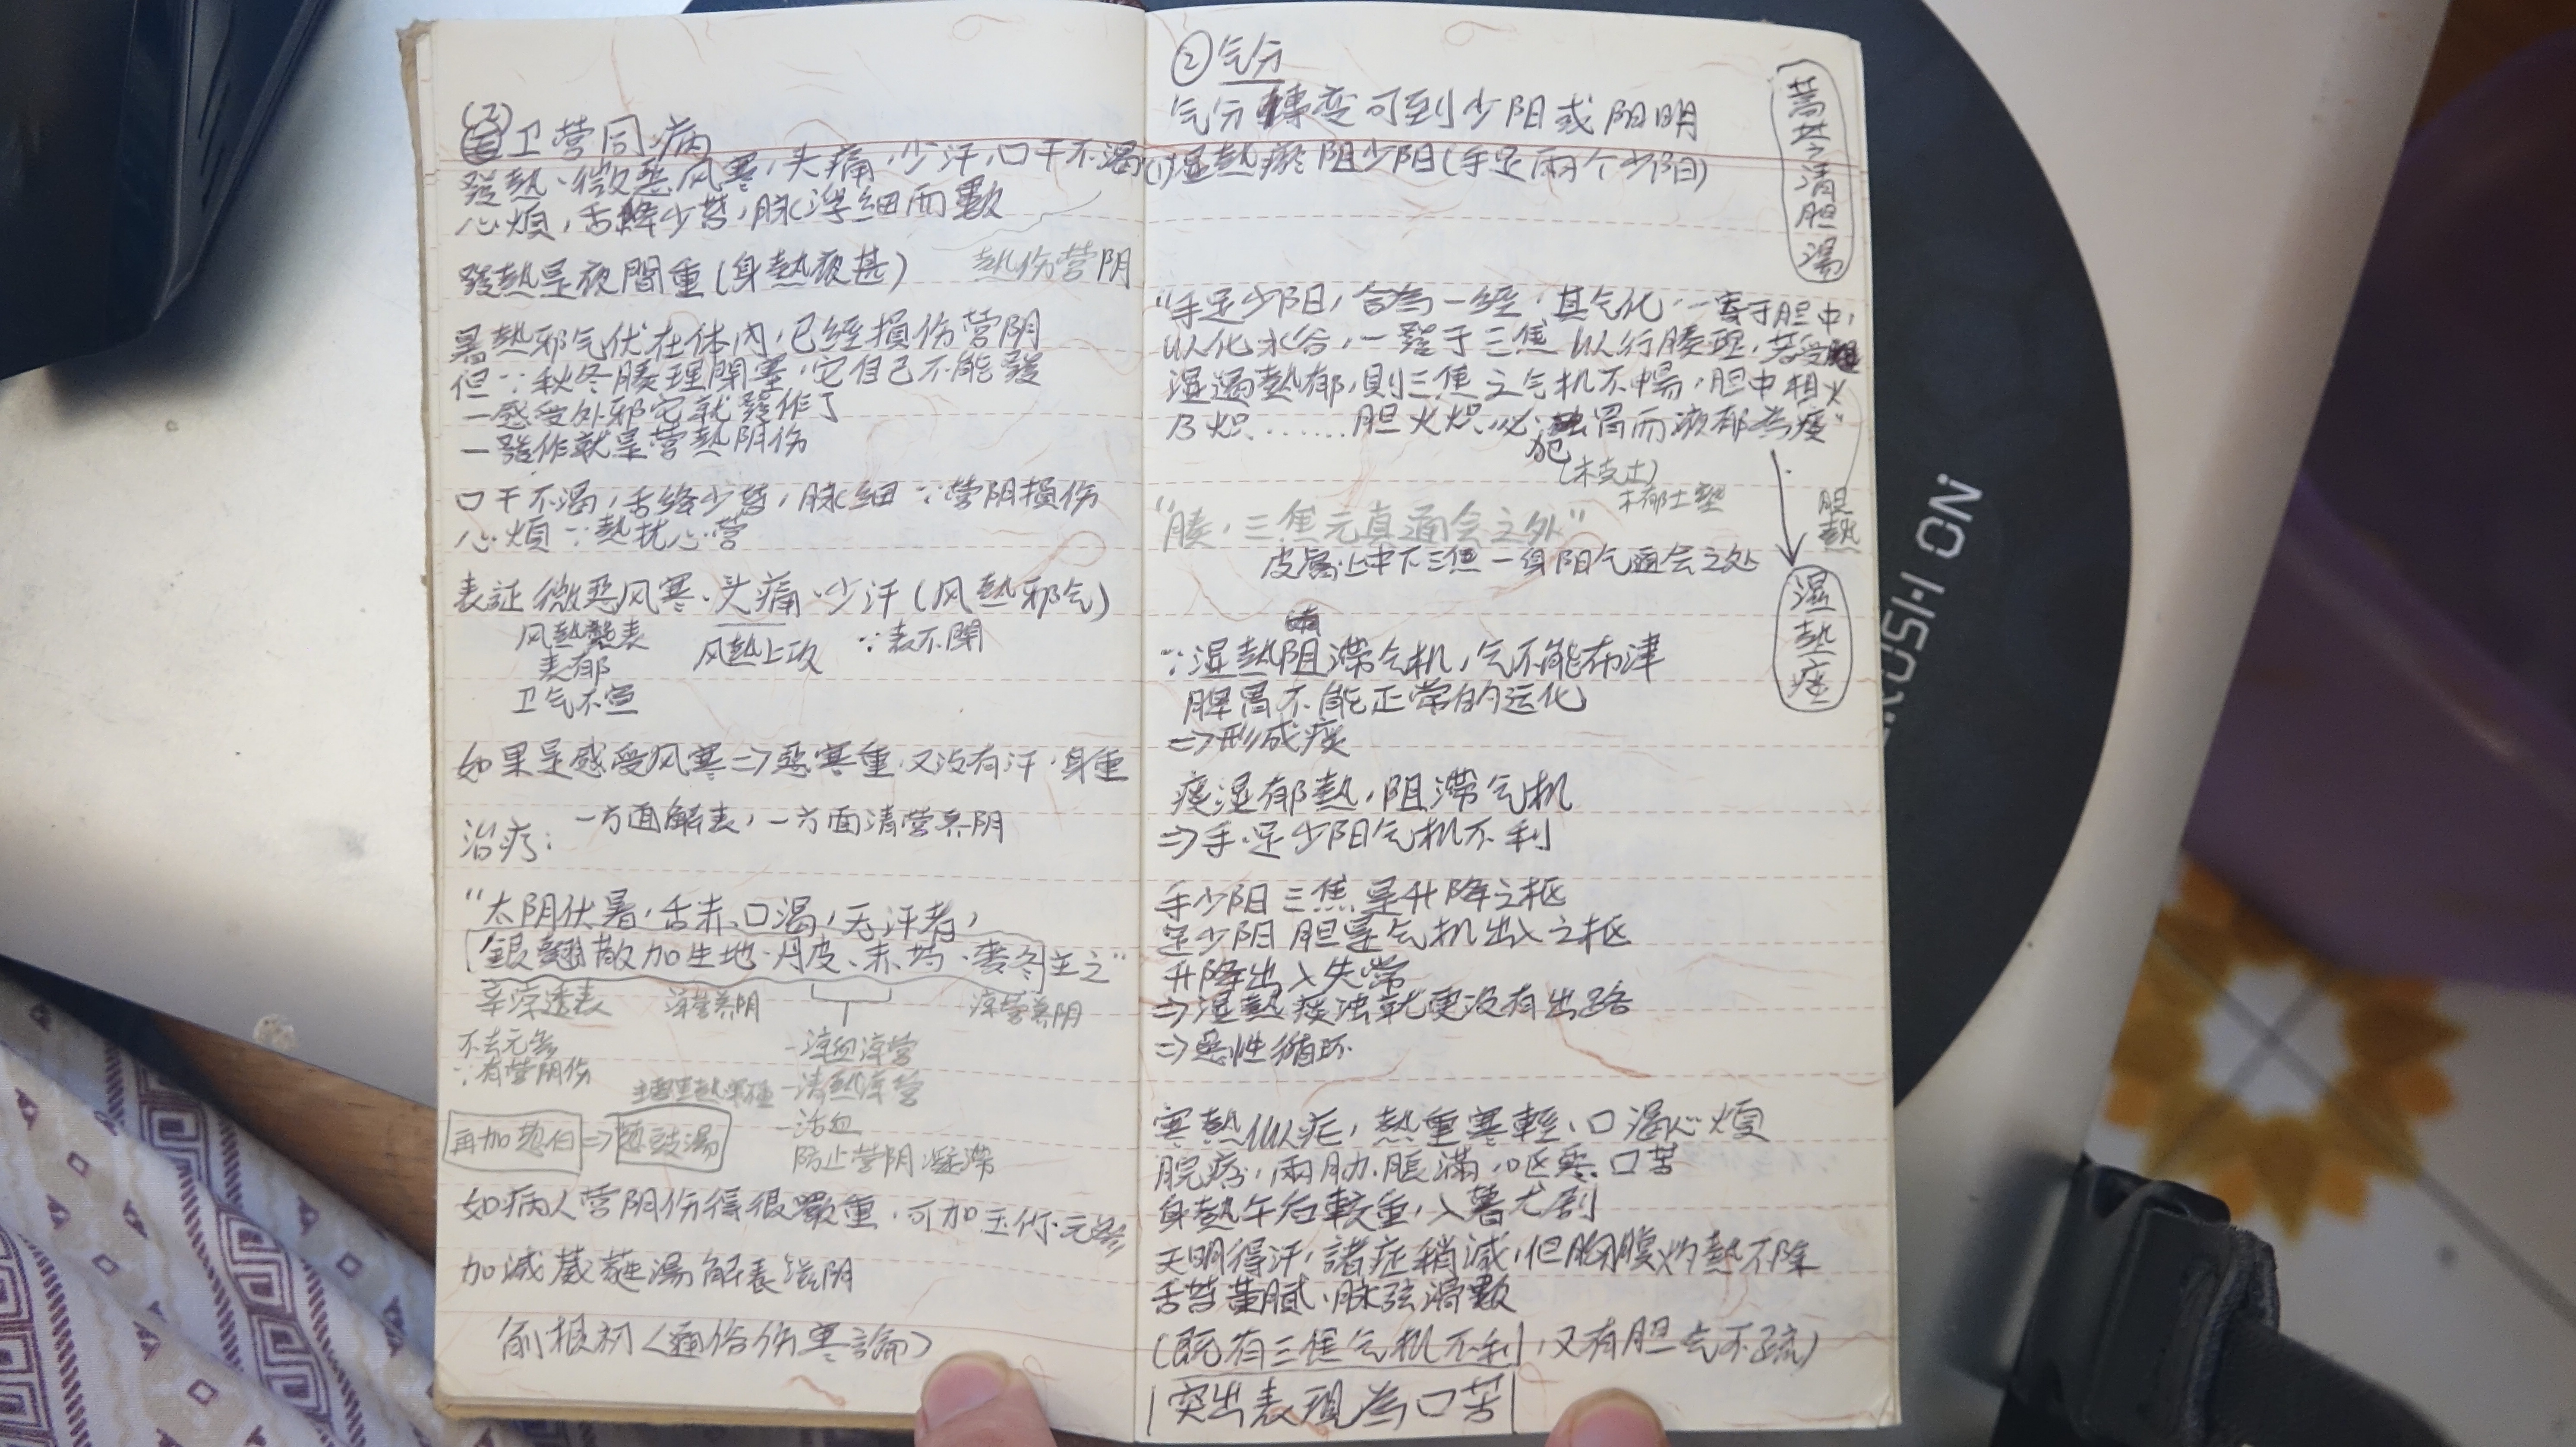 (2)卫营同病
發熱、微恶风寒,头痛,少汗,口干不渴
心煩,舌絳少苔,脉浮細而數
發熱是夜間重(身熱夜甚)
熱伤营阴
暑熱邪气伏在体内,已經損伤营阴
但∵秋冬腠理閉塞,它自己不能發
一感受外邪它就發作了
一發作就是营熱阴伤
口干不渴,舌绛少苔,脉細∵营阴損伤
心煩∵熱扰心营
表証 微恶风寒、头痛、少汗(风熱邪气)
风熱襲表
表郁
卫气不宣
风熱上攻
∵表不開
如果是感受风寒⇒恶寒重,又没有汗,身重
治疗:一方面解表,一方面清营养阴
"太阴伏暑,舌赤、口渴,无汗者,
銀翹散加生地、丹皮、赤芍、麥冬主之"
辛凉透表
涼营养阴
涼营养阴
不去元参
∵有营阴伤
-涼血涼营
-清熱涼营
-活血
防止营阴凝滯
再加葱白⇒葱豉湯
如病人营阴伤得很嚴重,可加玉竹、元参
加减葳蕤湯解表滋阴
俞根初〈通俗伤寒論〉
②气分
气分轉变可到少阳或阳明
(1)湿熱瘀阻少阳(手足兩个少阳)
蒿芩清胆湯
"手足少阳,合為一經,其气化,一寄于胆中,
以化水谷,一發于三焦以行腠理,若受
湿遏熱郁,則三焦之气机不暢,胆中相火
乃炽......胆火炽,必犯胃而液郁為痰"
(木克土)
木郁土壅
胆熱
湿熱痰
"腠,三焦元真通会之处"
皮屬上中下三焦一身阳气通会之处
∵湿熱阻滯气机,气不能布津
脾胃不能正常的运化
⇒形成痰
痰湿郁熱,阻滯气机
⇒手、足少阳气机不利
手少阳三焦是升降之枢
足少阳胆是气机出入之枢
升降出入失常
⇒湿熱痰浊就更没有出路
⇒恶性循环
寒熱似疟,熱重寒輕,口渴心煩
脘痞,兩肋脹滿,呕恶、口苦
身熱午后較重,入暮尤剧
天明得汗,諸症稍减,但胸腹灼熱不除
舌苔黃腻、脉弦滑數
(既有三焦气机不利,又有胆气不疏)
突出表現為口苦